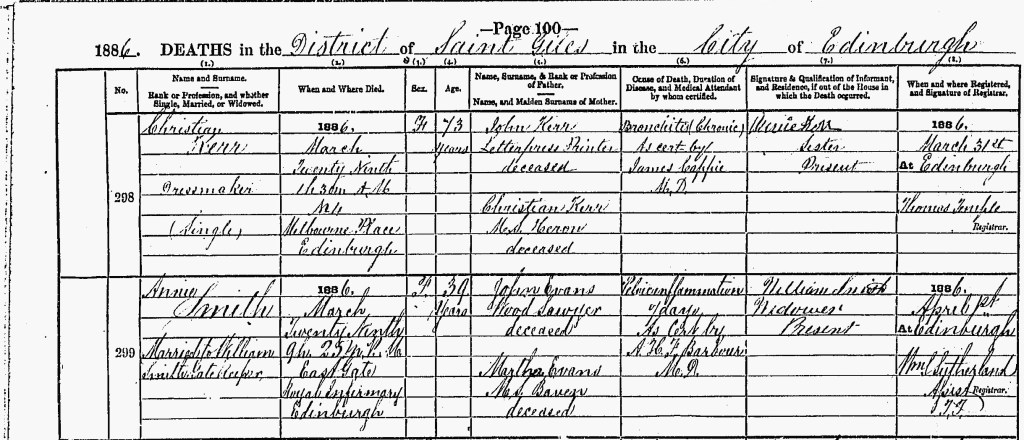 —Page 100—
1886. DEATHS in the District of Saint Giles in the City of Edinburgh
(1.) (2.) (3.) (4.) (5.) (6.) (7.) (8.)
No.
Name and Surname.
Rank or Profession, and whether
Single, Married, or Widowed.
When and Where Died.
Sex.
Age.
Name, Surname, & Rank or Profession
of Father.
Name, and Maiden Surname of Mother.
Cause of Death, Duration of
Disease, and Medical Attendant
by whom certified.
Signature & Qualification of Informant,
and Residence, if out of the House in
which the Death occurred.
When and where Registered,
and Signature of Registrar.
298
Christian
Kerr
Dressmaker
(Single)
1886.
March
Twenty Ninth
1h 30m A.M.
Melbourne Place
Edinburgh
F
73
Years
John Kerr
Letterpress Printer
deceased
Christian Kerr
M.S. Heron
deceased
Bronchitis (Chronic)
As cert. by
James Cappie
M.D.
Kerr
Sister
Present
1886.
March 31st
At Edinburgh
Thomas Temple
Registrar.
299
Annie
Smith
Married to William
Smith Gate Keeper
1886.
March
Twenty Ninth
9h. 25m P.M.
East Gate
Royal Infirmary
Edinburgh
F.
39
Years
John Evans
Wood Sawyer
deceased
Martha Evans
M.S.
deceased
Pelvic Inflammation
7 days
As Cert by
A. H. F. Barbour
M.D.
William Smith
Widower
Present
1886.
April 1st
At Edinburgh
Wm. Sutherland
Asst Registrar.